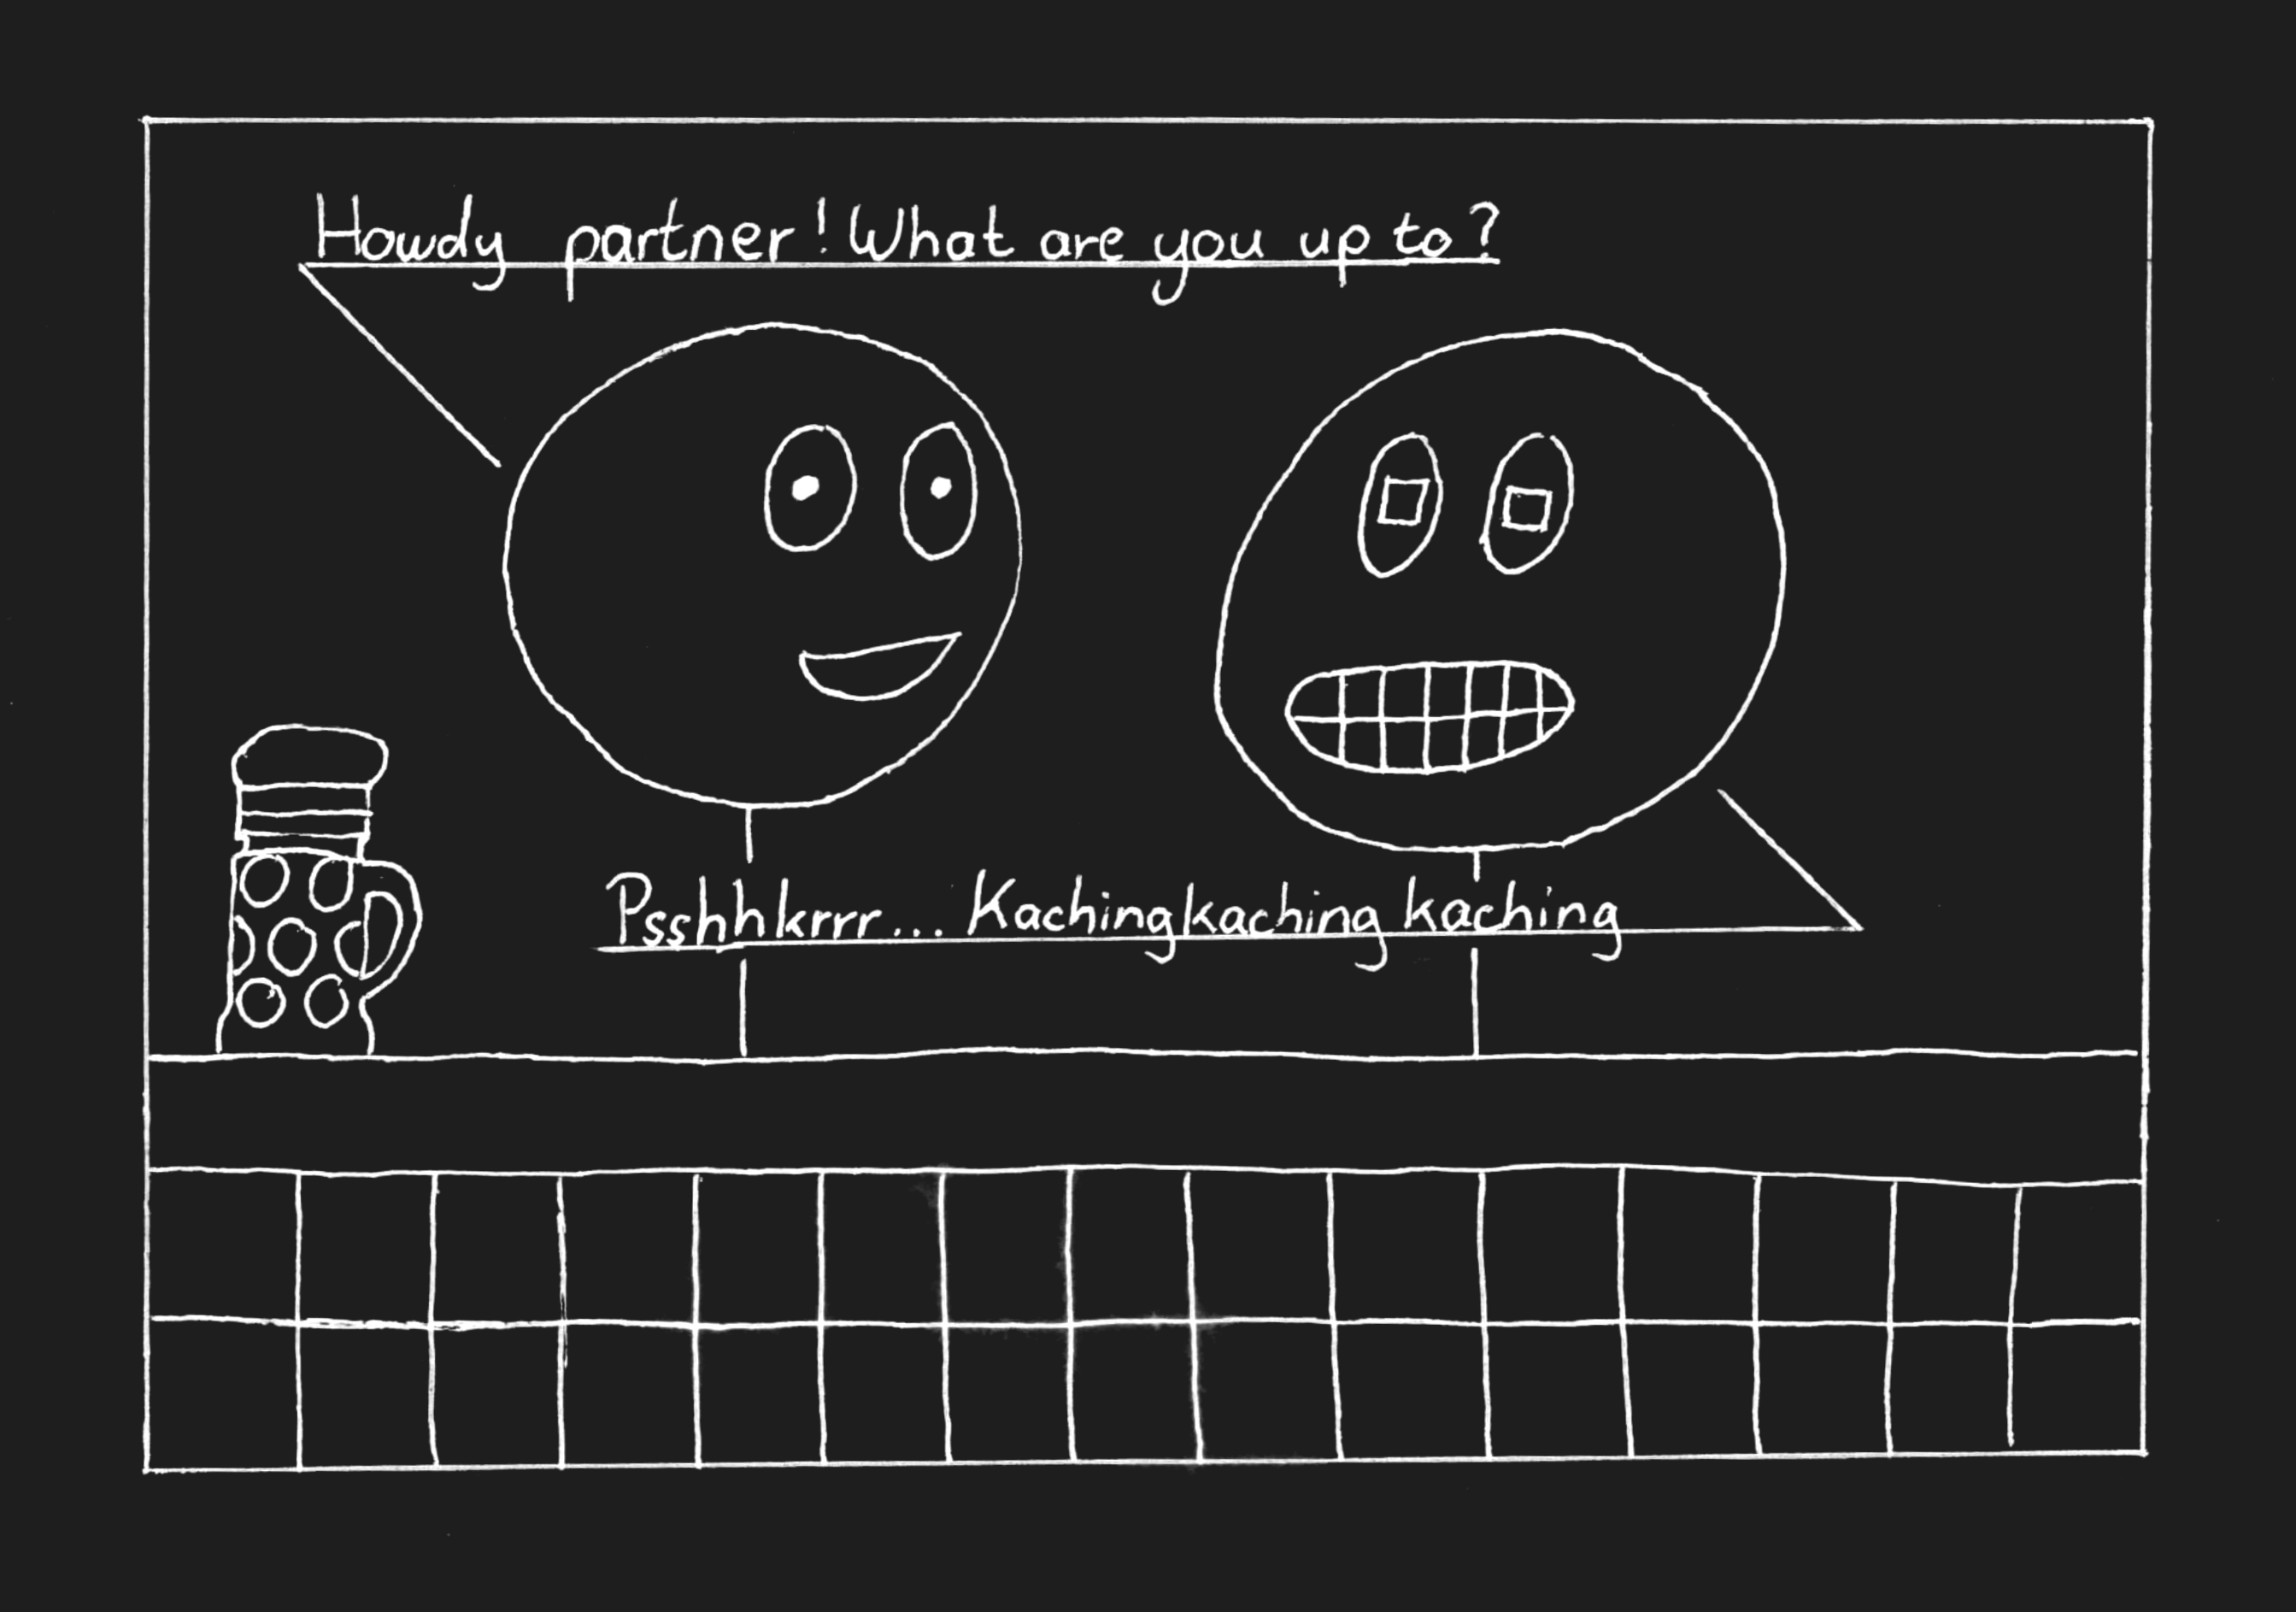 Howdy partner! What are you up to?
Psshhkrrr... Kachingkaching kaching